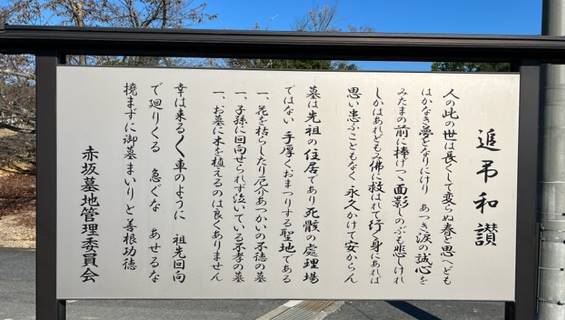 追弔和讃
人の此の世は長くして変らぬ春と思へども
はかなき夢となりにけり　あつき涙の誠心を
みたまの前に捧げつゝ面影しのぶも悲しけれ
しかはあれども み佛に救はれて行く身にあれば
思い患ふこともなく 永久かけて安からん
墓は先祖の住居であり死骸の處理場
ではない　手厚くおまつりする聖地である
一、花を枯らしたり厄介あつかいの不徳の墓
一、子孫に回向せられず泣いている不孝の墓
一、お墓に木を植えるのは良くありません
幸は来るく車のように　祖先回向
で廻りくる　急ぐな　あせるな
撓まずに御墓まいりと善根功徳
赤坂墓地管理委員会